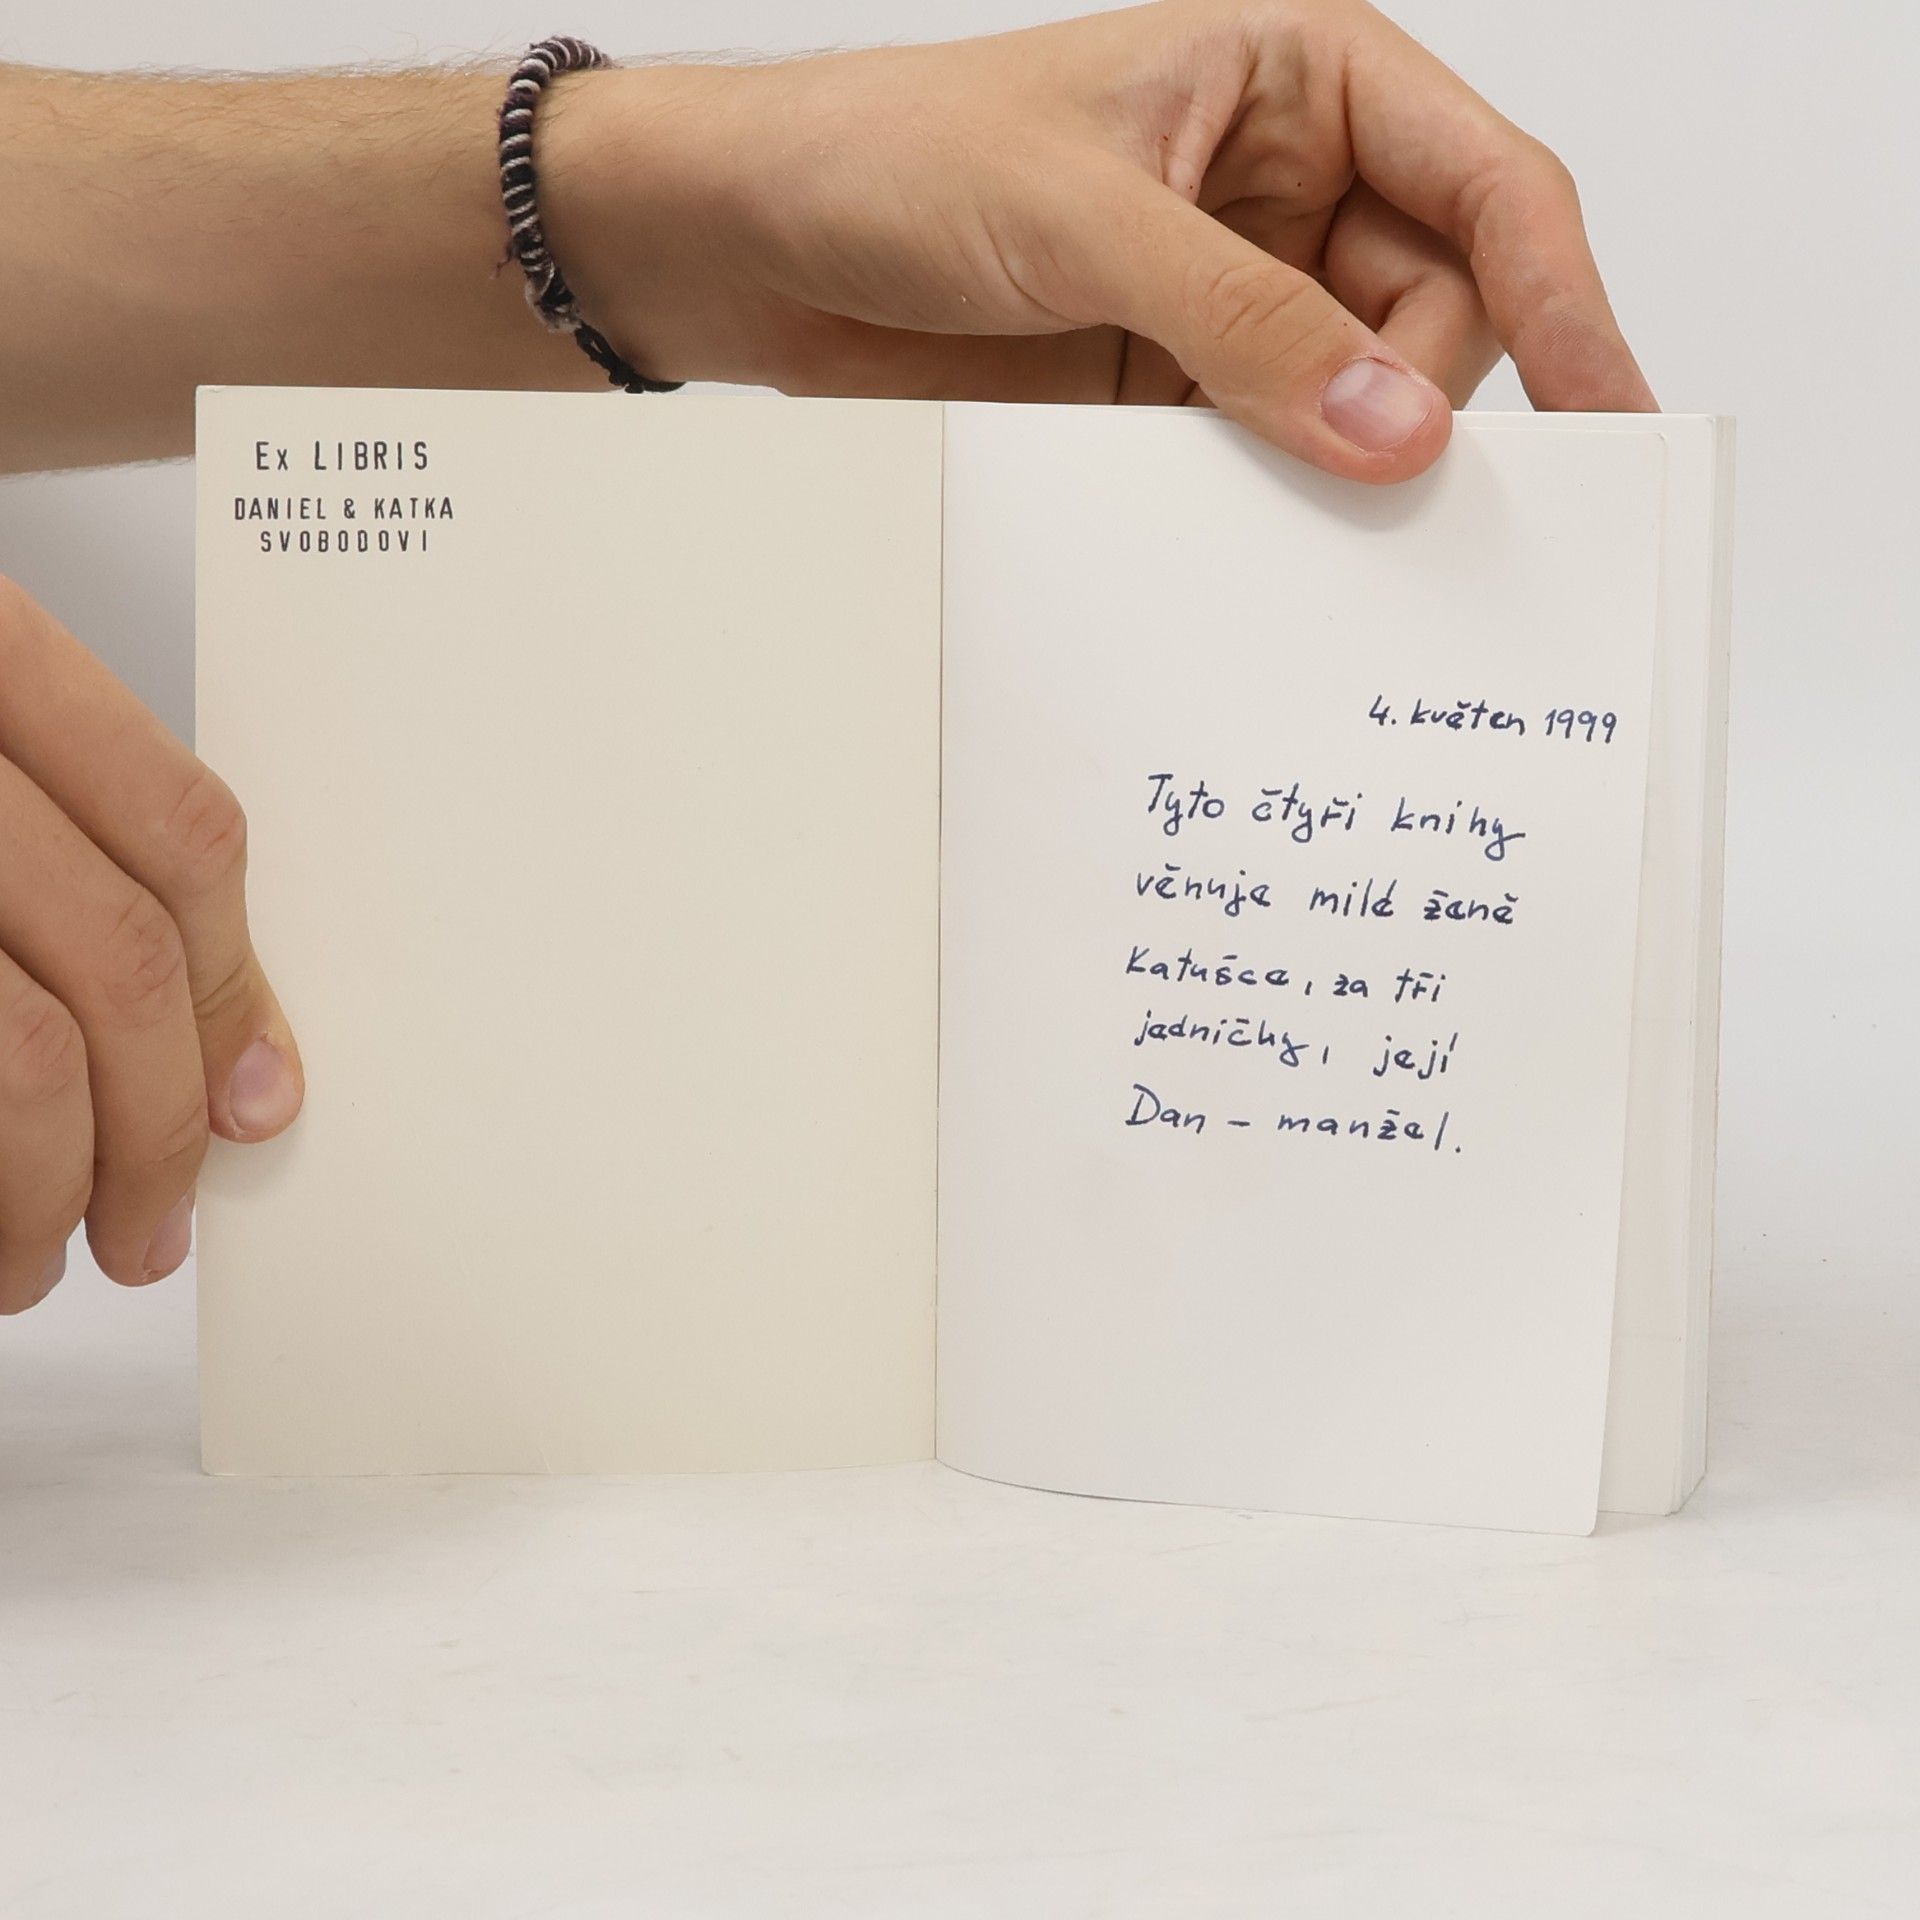 Ex LIBRIS
DANIEL & KATKA
SVOBODOVI
4. květen 1999
Tyto čtyři knihy
věnuje milé ženě
Katušce, za tři
jedničky, její
Dan - manžel.